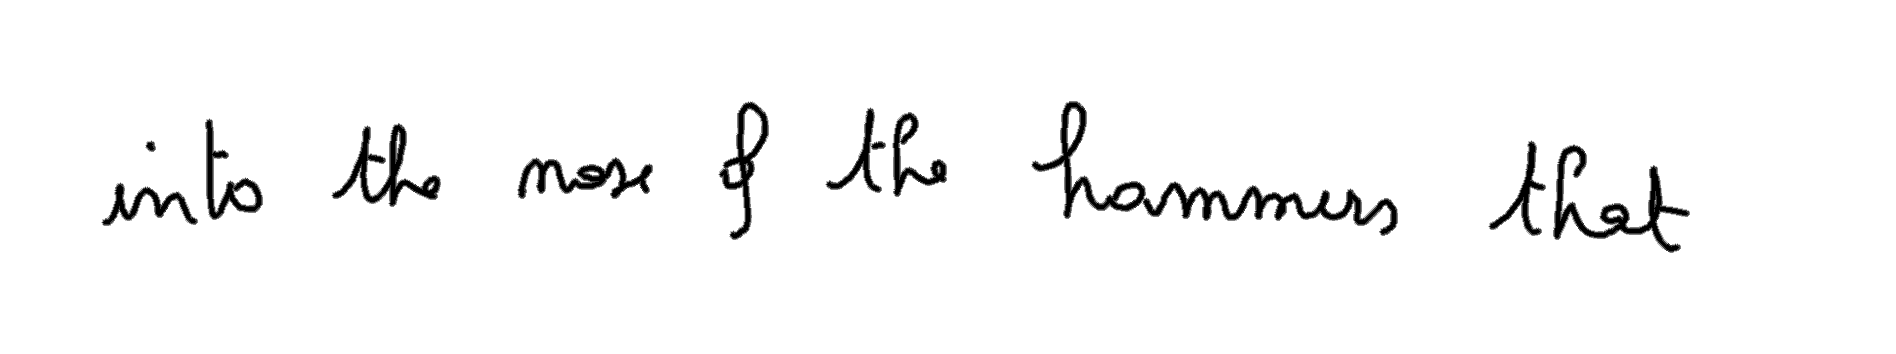 into the nose of the hammers that